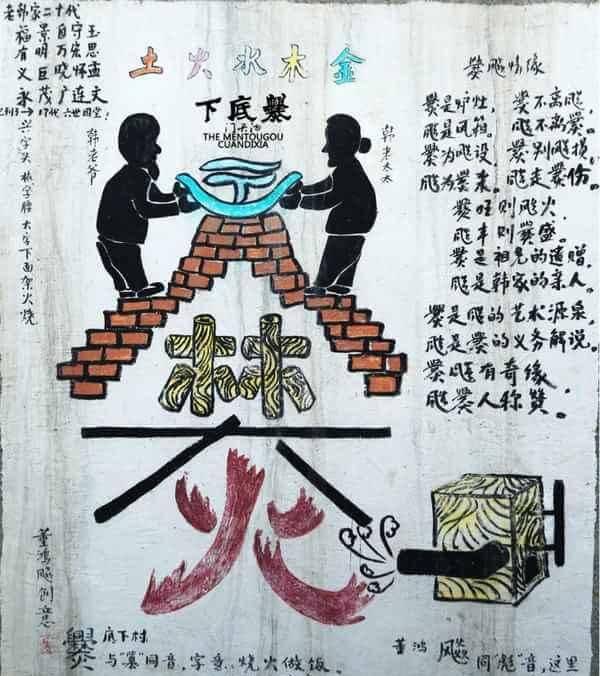 老韩家二十代
福景自守玉
有明万宏思
义巨晓怀孟
永茂广连文
17代 六世同堂
土火水木金
下底爨
门头沟
THE MENTOUGOU
CUANDIXIA
韩老爷
韩老太太
兴字头 林字腰 大字下面架火烧
爨飚情缘
爨是炉灶, 爨不离飚,
飚是风箱。 飚不离爨。
爨为飚设, 爨别飚损,
飚为爨来。 飚走爨伤。
爨旺则飚火,
飚丰则爨盛。
爨是祖先的遗赠,
飚是韩家的亲人。
爨是飚的艺术源泉,
飚是爨的义务解说。
爨飚有奇缘,
飚爨人称赞。
董鸿飚创意
爨底下村
与“篡”同音,字意:烧火做饭。
董鸿飚 同“彪”音,这里